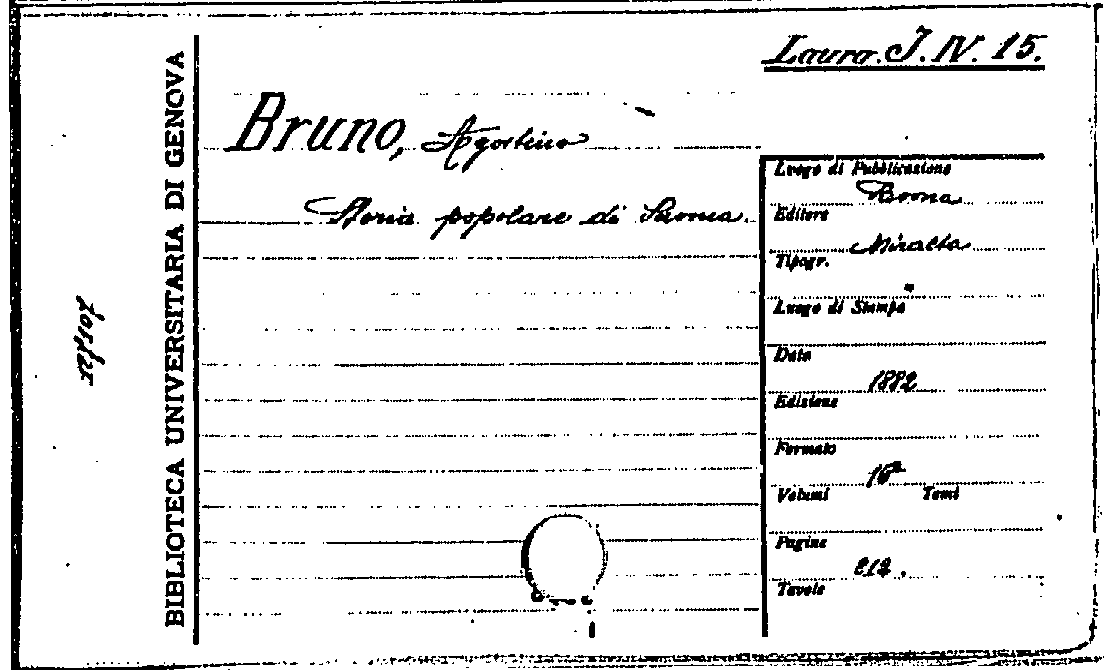 Laura. J. IV. 15.
BIBLIOTECA UNIVERSITARIA DI GENOVA
Bruno, Agostino
Storia popolare di Savona.
Luogo di Pubblicazione
Editore
Miralta
Tipogr.
Luogo di Stampa
Data
1882
Edizione
Formato
16°
Volumi Tomi
Pagine
212.
Tavole